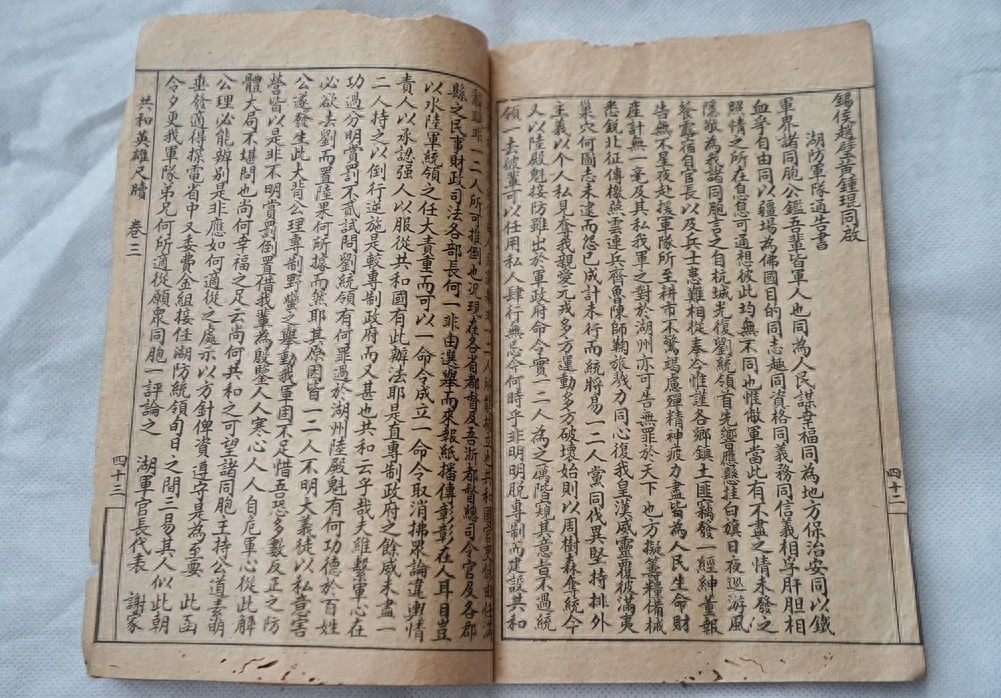 錫侯趙壁黃鍾琨同啟
湖防軍隊通告書
軍界諸同胞公鑑吾輩皆軍人也同為人民謀幸福同為地方保治安同以鐵
血爭自由同以疆場為佛國目的同志趣同資格同義務同信義相孚肝胆相
照情之所在息息可通想彼此均無不同也惟敝軍當此有不盡之情未發之
隱敬為我諸同胞言之自杭城光復劉統領首先響應懸挂白旗日夜巡游風
餐露宿自官長以及兵士患難相從奉令惟謹各鄉鎮土匪竊發一經紳董報
告無不星夜赴援軍隊所至耕市不驚竭慮殫精神疲力盡皆為人民生命財
產計無一毫及其私我軍之對於湖州亦可告無罪於天下也方擬籌糧備械
悉銳北征傳檄燕雲連兵齊魯陳師鞠旅戮力同心復我皇漢威靈覆彼滿夷
巢穴何圖志未逮而怨已成計未行而統將易一二人黨同伐異堅持排外
主義以个人私見奪我親愛元戎多方運動多方破壞始則以周樹森奪統今
又以陸殿魁接防雖出於軍政府命令實一二人為之厲階窺其意旨不過統
領一去彼輩可以任用私人肆行無忌今何時乎非明明脫專制而建設共和
四十二
縣之民事財政司法各部長何一非由選舉而來報紙播傳彰彰在人耳目豈
以水陸軍統領之任大責重而可以一命令成立一命令取消拂眾論違輿情
責人以承認强人以服從共和國有此辦法耶是直專制政府之餘威未盡一
二人持之以倒行逆施是較專制政府而又甚也共和云乎哉夫維繫軍心在
功過分明賞罰不貳試問劉統領有何罪過於湖州陸殿魁有何功德於百姓
必欲去劉而置陸果何所據而然耶其原因皆一二人不明大義徒以私意害
公遂發生此大背公理專制野蠻之舉動我軍固不足惜吾恐多數反正之防
營皆以是非不明賞罰倒置借我輩為殷鑒人人寒心人人自危軍心從此解
體大局不堪問也尚何幸福之足云尚何共和之可望諸同胞主持公道素明
公理必能辦別是非應如何適從之處示以方針俾資遵守是為至要　此函
垂發適得探電省中又委費金組接任湖防統領旬日之間三易其人似此朝
令夕更我軍隊弟兄何所適從願眾同胞一評論之　湖軍官長代表　謝家
共和英雄尺牘　卷三　四十三